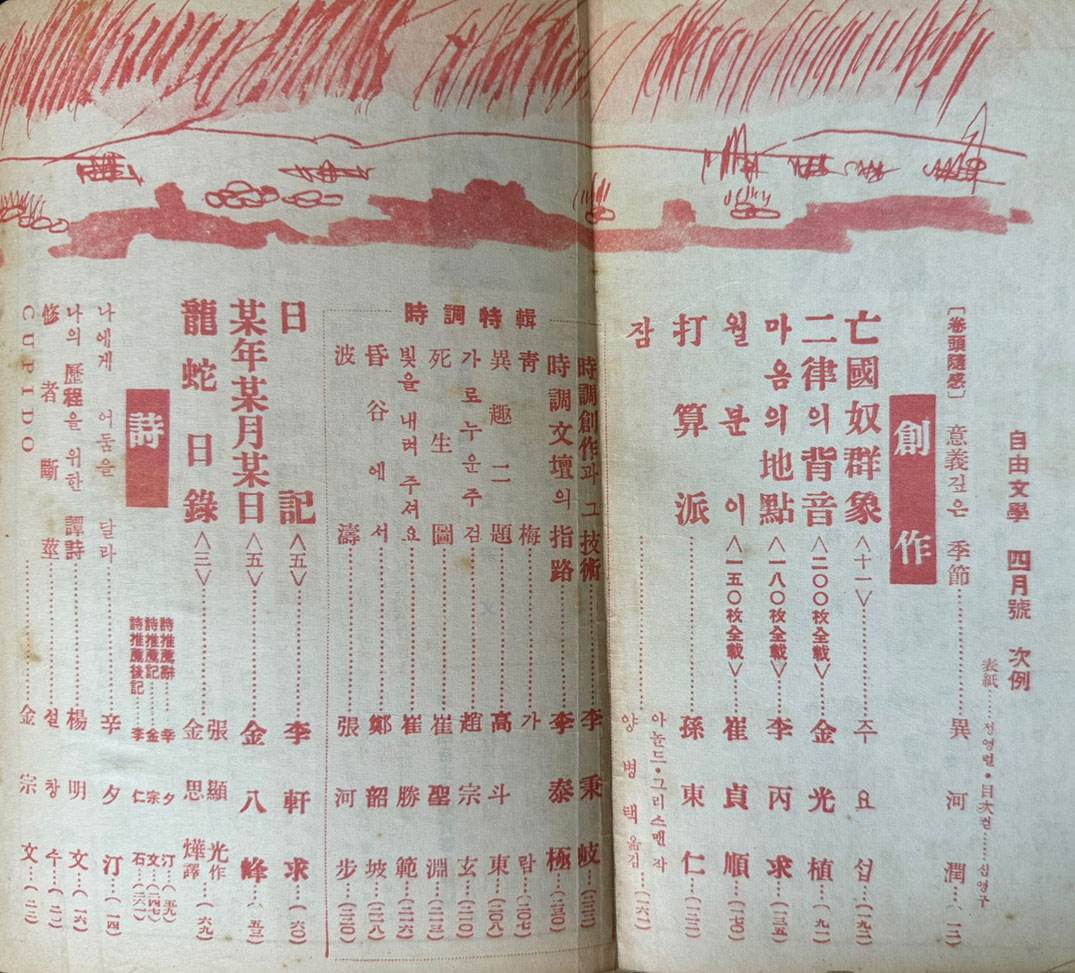 自由文學 四月號 次例
表紙……정영렬・目次컽……심영구
[卷頭隨感] 意義깊은 季節……異河潤…(一二)
創作
亡國奴群象 <十一>……주요섭…(一九二)
二律의 背音 <二〇〇枚全載>……金光植…(九一)
마음의 地點 <一八〇枚全載>……李丙求…(三五)
월분이 <一五〇枚全載>……崔貞順…(一七〇)
打算派……孫東仁…(一二二)
잠……아놀드・그리스맨 작
양병태 옮김…(一六一)
時調創作과 그 技術……李秉岐…(二三二)
時調文壇의 指路……李泰極…(二三〇)
時調特輯
靑梅……가람…(二〇七)
異趣二題……高斗東…(二〇八)
가로누운 주검……趙宗玄…(二一〇)
死生圖……崔聖淵…(二一三)
빛을 내려 주셔요……崔勝範…(二一六)
昏谷에서……鄭韶坡…(二一八)
波濤……張河步…(二二〇)
日記 <五>……李軒求…(六〇)
某年某月某日 <五>……金八峰…(五三)
龍蛇日錄 <三>……張顯光作
金思燁譯…(六九)
詩推薦辭……辛夕汀…(五九)
詩推薦記……金宗文…(一四七)
詩推薦後記……李仁石…(二六一)
詩
나에게 어둠을 달라……辛夕汀…(一四)
나의 歷程을 위한 譚詩……楊明文…(一六)
修者斷莖……설창수…(二一)
CUPIDO……金宗文…(二三)